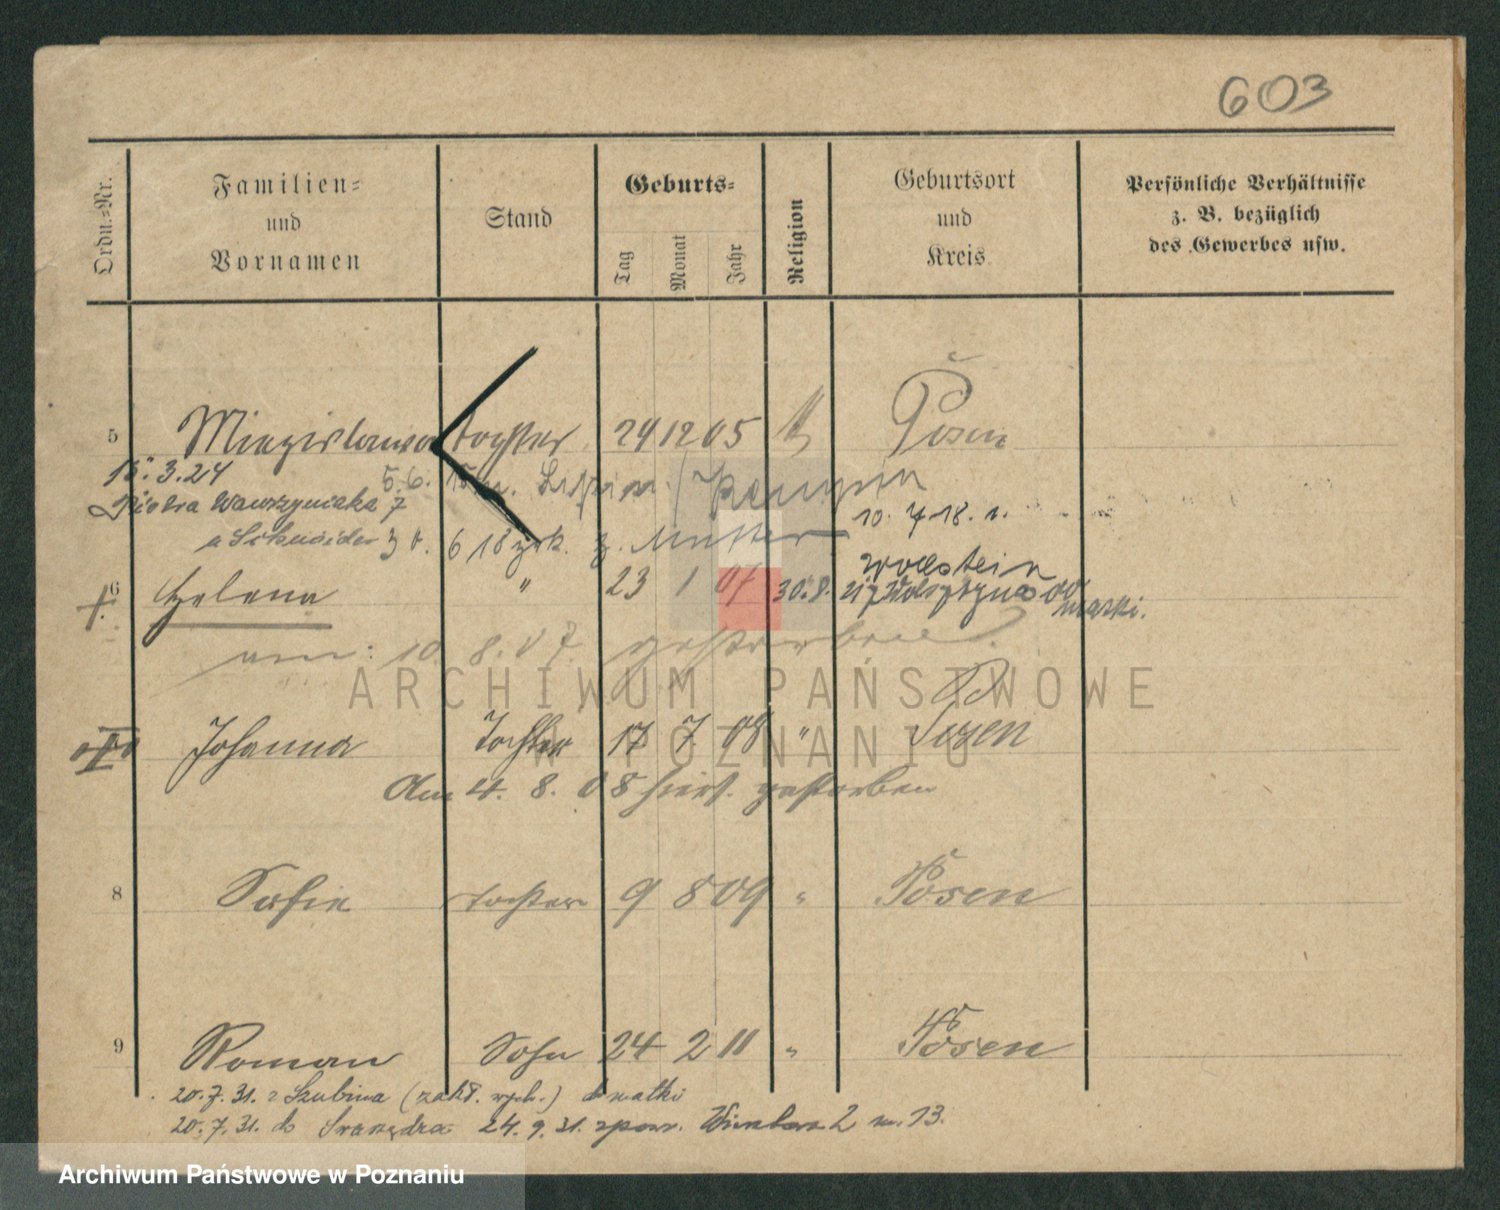 603
Ordn.-Nr.
Familien-
und
Vornamen
Stand
Geburts-
Tag
Monat
Jahr
Religion
Geburtsort
und
Kreis
Persönliche Verhältnisse
z. B. bezüglich
des Gewerbes usw.
5 Miezislawa Tochter 24 12 05 Posen
15.3.24 5.6.
Piotra Wawrzyniaka 7 10. 7 18.
a Schneider 6 18 zrk. z. Mutter
Wollstein
6 Helena " 23 1 07 30.8.
am: 10. 8. 07. gestorben.
Johanna Tochter 17 7. 08 " Posen
Am 4. 8. 08 hier. gestorben
8 Sofie Tochter 9 8 09 " Posen
9 Roman Sohn 24 2 11 " Posen
20.7.31. z Szubina (zakł. wych.) do matki
20.7.31. do 24.9.31. spow. 2 m. 13.
ARCHIWUM PAŃSTWOWE
W POZNANIU
Archiwum Państwowe w Poznaniu